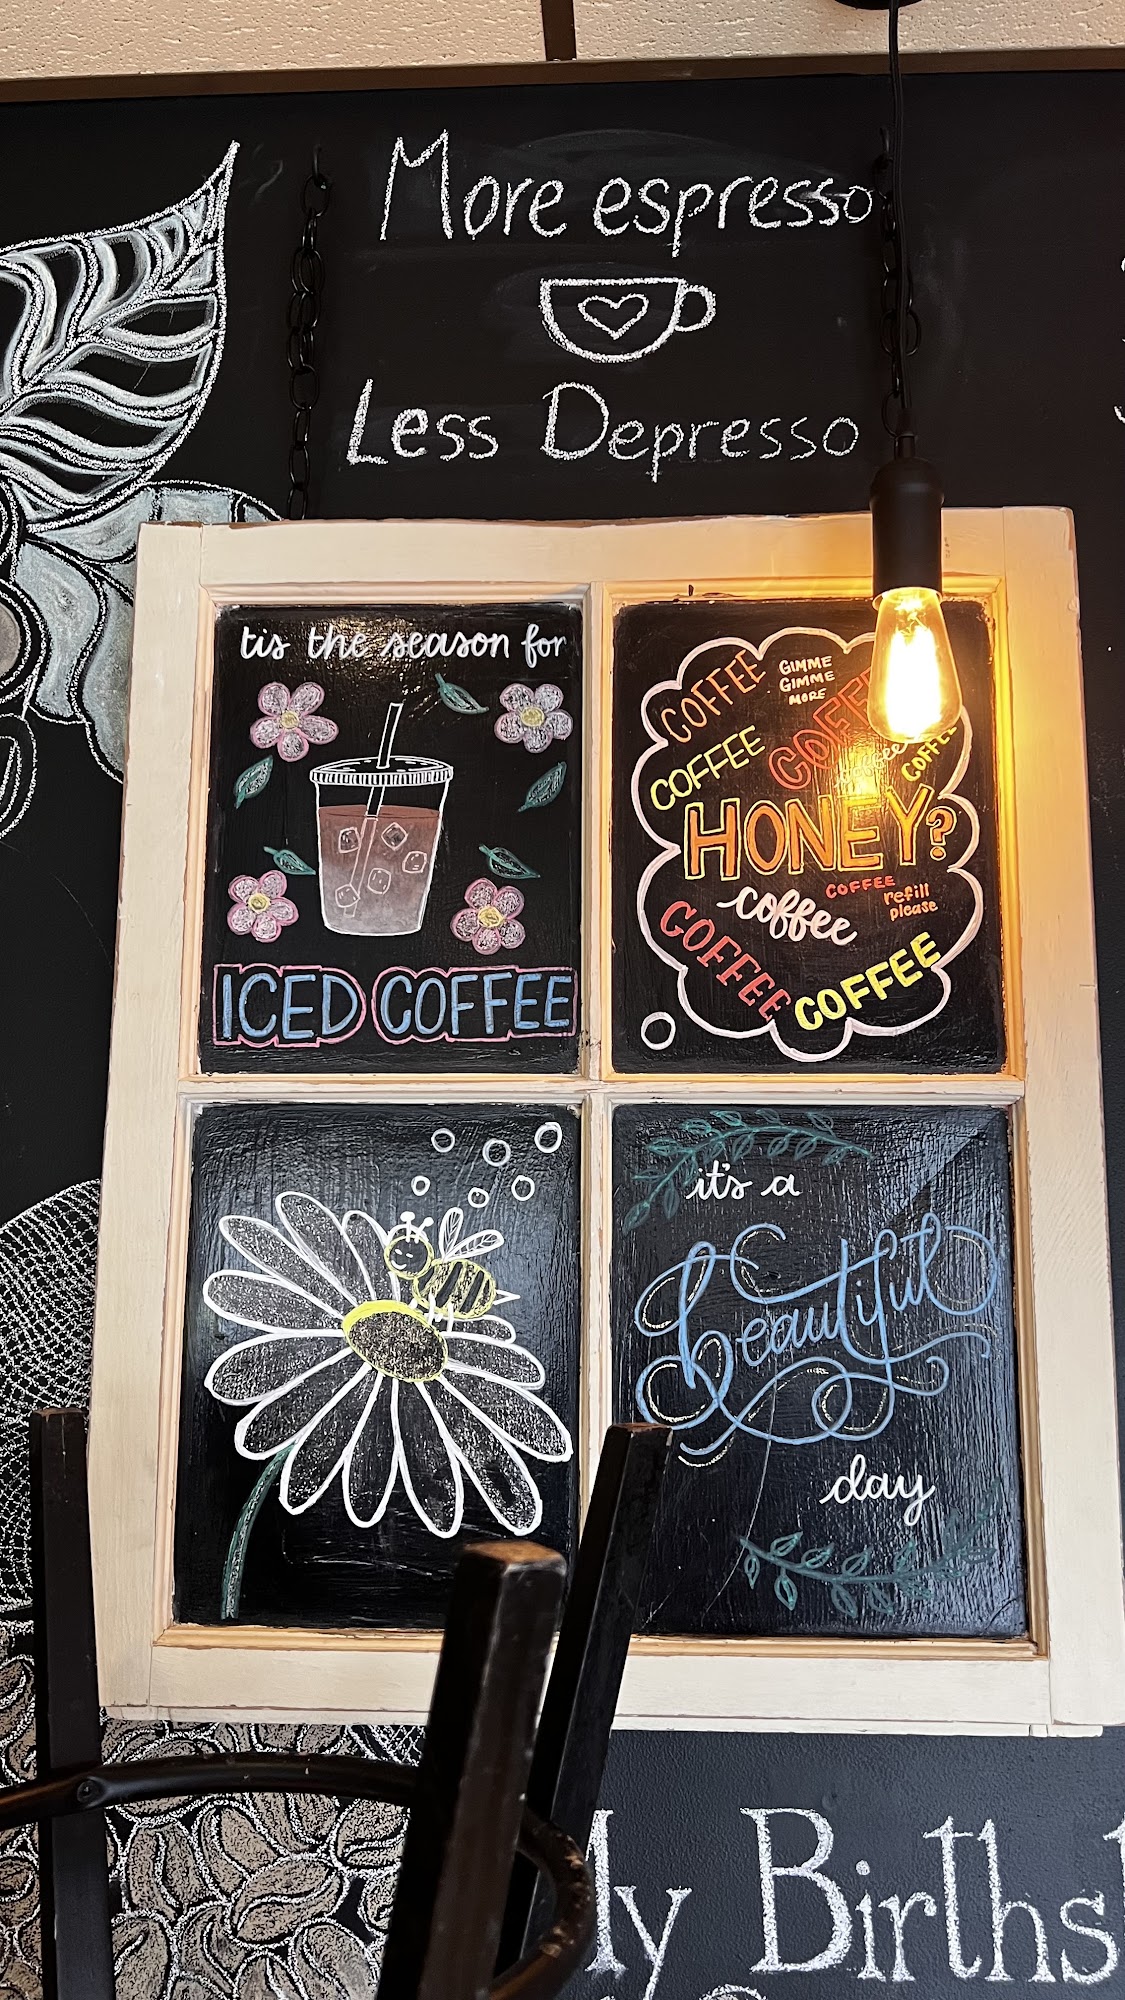 More espresso
Less Depresso
tis the season for
ICED COFFEE
COFFEE
GIMME
GIMME
MORE
COFFEE
COFFEE
coffee
COFFEE
HONEY?
COFFEE
coffee
refill
please
COFFEE
COFFEE
it's a
beautiful
day
My Births